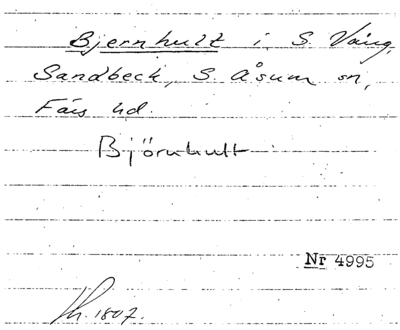 Bjernhult i S. Vång,
Sandbeck, S. Åsum sn,
Färs hd.
Björnhult
Nr 4995
1807.